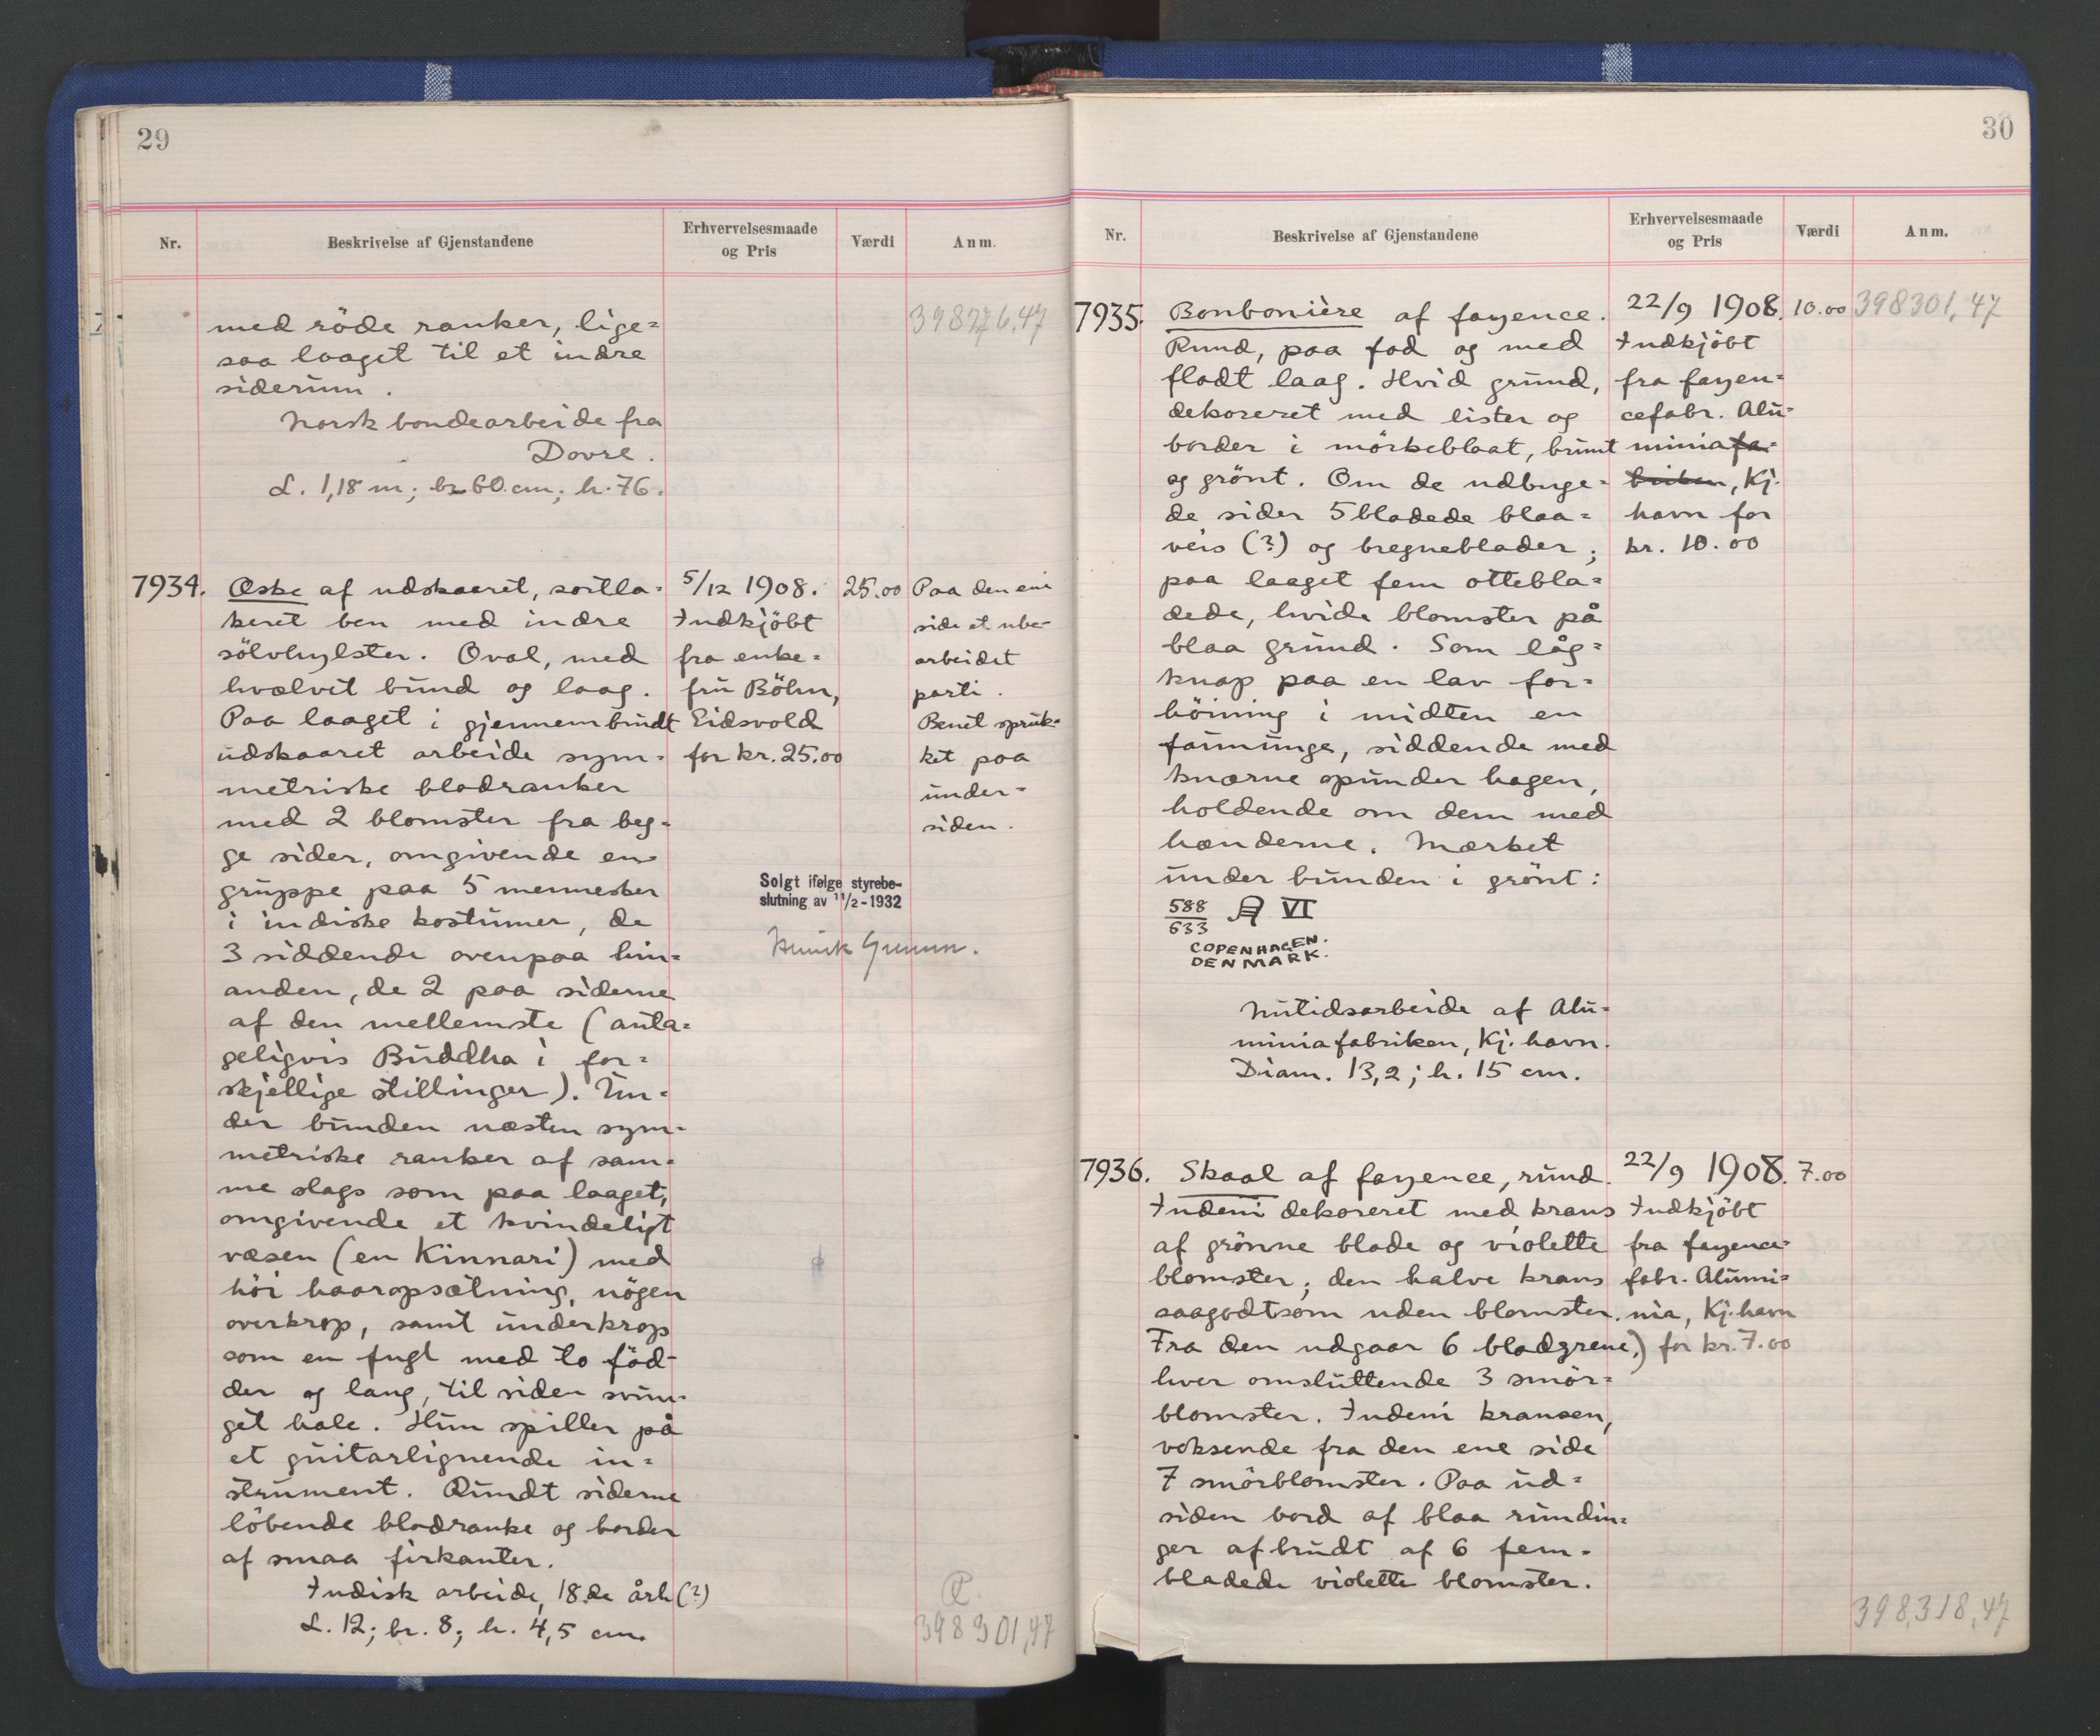 29
Nr.
Beskrivelse af Gjenstandene
Erhvervelsesmaade
og Pris
Værdi
Anm.
med röde ranker, lige=
saa laaget til et indre
siderum.
Norsk bondearbeide fra
Dovre.
L. 1,18 m; br. 60 cm; h. 76.
398276,47
7934.
Æske af udskaaret, sortla-
keret ben med indre
sölvhylster. Oval, med
hvælvet bund og laag.
Paa laaget i gjennembrudt
udskaaret arbeide sym-
metriske bladranker
med 2 blomster fra beg-
ge sider, omgivende en
gruppe paa 5 mennesker
i indiske kostumer, de
3 siddende ovenpaa hin=
anden, de 2 paa siderne
af den mellemste (anta=
geligvis Buddha i for=
skjellige stillinger). Un-
der bunden næsten sym-
metriske ranker af sam-
me slags som paa laaget,
omgivende et kvindeligt
væsen (en Kinnari) med
höi haaropsætning, nögen
overkrop, samt underkrop
som en fugl med to föd-
der og lang, til siden svun-
get hale. Hun spiller på
et guitarlignende in=
strument. Rundt siderne
löbende bladranke og border
af smaa firkanter.
Indisk arbeide, 18.de årh(?)
L. 12; br. 8; h. 4,5 cm.
5/12 1908.
Indkjöbt
fra enke=
fru Böhn,
Eidsvold
for kr. 25.00
25.00
Paa den ene
side et ube-
arbeidet
parti.
Benet spruk-
ket paa
under-
siden.
Solgt ifølge styrebe-
slutning av 11/2-1932
398301,47
30
Nr.
Beskrivelse af Gjenstandene
Erhvervelsesmaade
og Pris
Værdi
Anm.
7935.
Bonbonière af fayence.
Rund, paa fod og med
fladt laag. Hvid grund,
dekoreret med lister og
border i mörkeblaat, brunt
og grönt. Om de udbuge=
de sider 5 bladede blaa=
veis (?) og bregneblader;
paa laaget fem ottebla=
dede, hvide blomster på
blaa grund. Som låg=
knap paa en lav for=
höining i midten en
faununge, siddende med
knærne opunder hagen,
holdende om dem med
hænderne. Mærket
under bunden i grönt:
588
633
VI
COPENHAGEN.
DENMARK.
Nutidsarbeide af Alu=
miniafabriken, Kj.havn.
Diam. 13,2; h. 15 cm.
22/9 1908.
Indkjöbt
fra fayen=
cefabr. Alu=
minia fa=
briken, Kj.
havn for
kr. 10.00
10.00
398301,47
7936.
Skaal af fayence, rund.
Indeni dekoreret med krans
af grönne blade og violette
blomster; den halve krans
saagodtsom uden blomster.
Fra den udgaar 6 bladgrene,
hver omsluttende 3 smör=
blomster. Indeni kransen,
voksende fra den ene side
7 smörblomster. Paa ud=
siden bord af blaa rundin=
ger afbrudt af 6 fem-
bladede violette blomster.
22/9 1908.
Indkjöbt
fra fayence-
fabr. Alumi=
nia, Kj.havn
for kr. 7.00
7.00
398,318,47